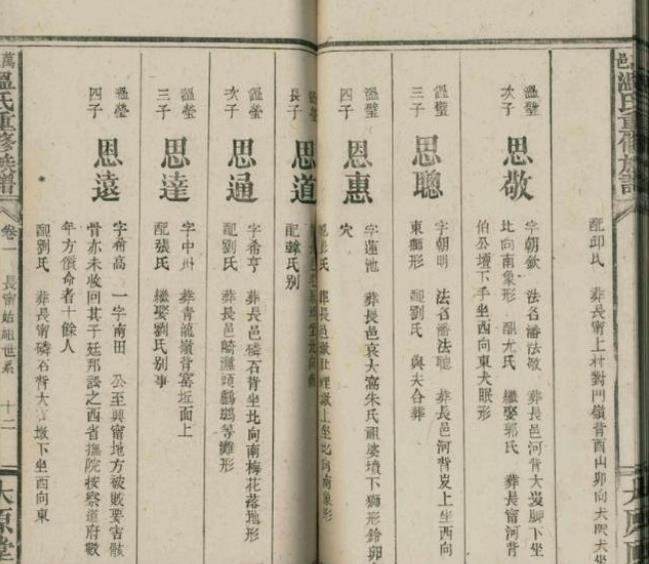 邑溫氏重修族譜
配邱氏 葬長甯上村對門嶺背酉山卯向犬
溫璧
次子
思敬
字朝欽 法名潘法敬 葬長邑河背大岌腳下坐
北向南象形 配尤氏 繼娶郭氏 葬長甯河背
伯公壇下手坐西向東犬眠形
溫璧
三子
思聰
字朝明 法名潘法聰 葬長邑河背岌上坐西向
東獅形 配劉氏 與夫合葬
溫璧
四子
恩惠
字蓮池 葬長邑哀大窩朱氏祖婆墳下獅形鈴卯
穴
長子
思道
配韓氏別
溫瑩
次子
思通
字希亨 葬長邑磷石背坐北向南梅花落地形
配劉氏 葬長邑
等灘形
溫瑩
三子
思達
字中州 葬青龍嶺背窩坵面上
配張氏 繼娶劉氏別事
溫瑩
四子
恩遠
字希高 一字南田 公至興甯地方被賊要害骸
骨亦未收回其子廷邦訟之西省撫院按察道府數
年方償命者十餘人
配劉氏 葬長甯磷石背大墩下坐西向東
萬溫氏重修族譜
卷一 長甯始祖世系 十二
太原堂